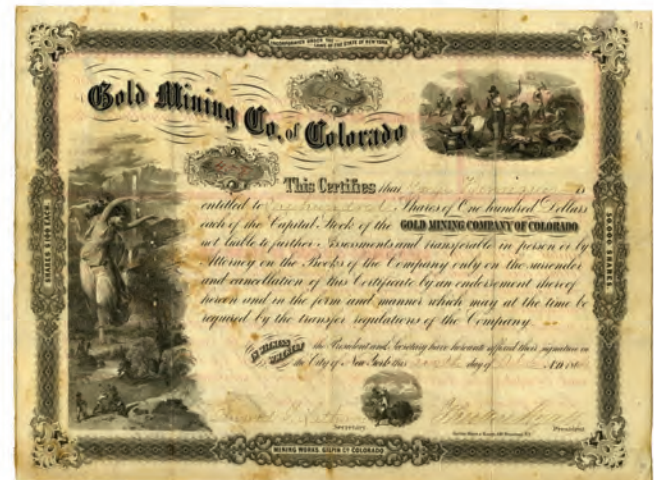 INCORPORATED UNDER THE
LAWS OF THE STATE OF NEW YORK
Gold Mining Co. of Colorado
This Certifies that is
entitled to Shares of One hundred Dollars
each of the Capital Stock of the GOLD MINING COMPANY OF COLORADO
not liable to further Assessments and transferable in person or by
Attorney on the Books of the Company only on the surrender
and cancellation of this Certificate by an endorsement thereof
hereon and in the form and manner which may at the time be
required by the transfer regulations of the Company.
IN WITNESS WHEREOF the President and Secretary have hereunto affixed their signature in
the City of New York this day of A.D. 18
Secretary. President.
SHARES $100 EACH.
SHARES.
MINING WORKS. GILPIN CY COLORADO.